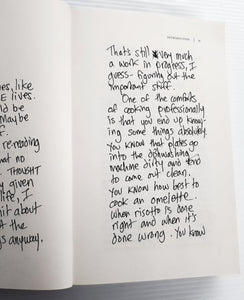 es, like
E LIVES.
ld be
Maybe
F
re-reading
at no
. THOUGHT
y given
life, I
it about
t the
gs anyway.
INTRODUCTION
That's still very much
a work in progress, I
guess- figuring out the
important stuff.
One of the comforts
of cooking professionally
is that you end up know-
ing some things absolutely.
You know that plates go
into the dishwashing
machine dirty and tend
to come out clean.
You know how best to
cook an omelette.
When risotto is done
right and when it's
done wrong. You know